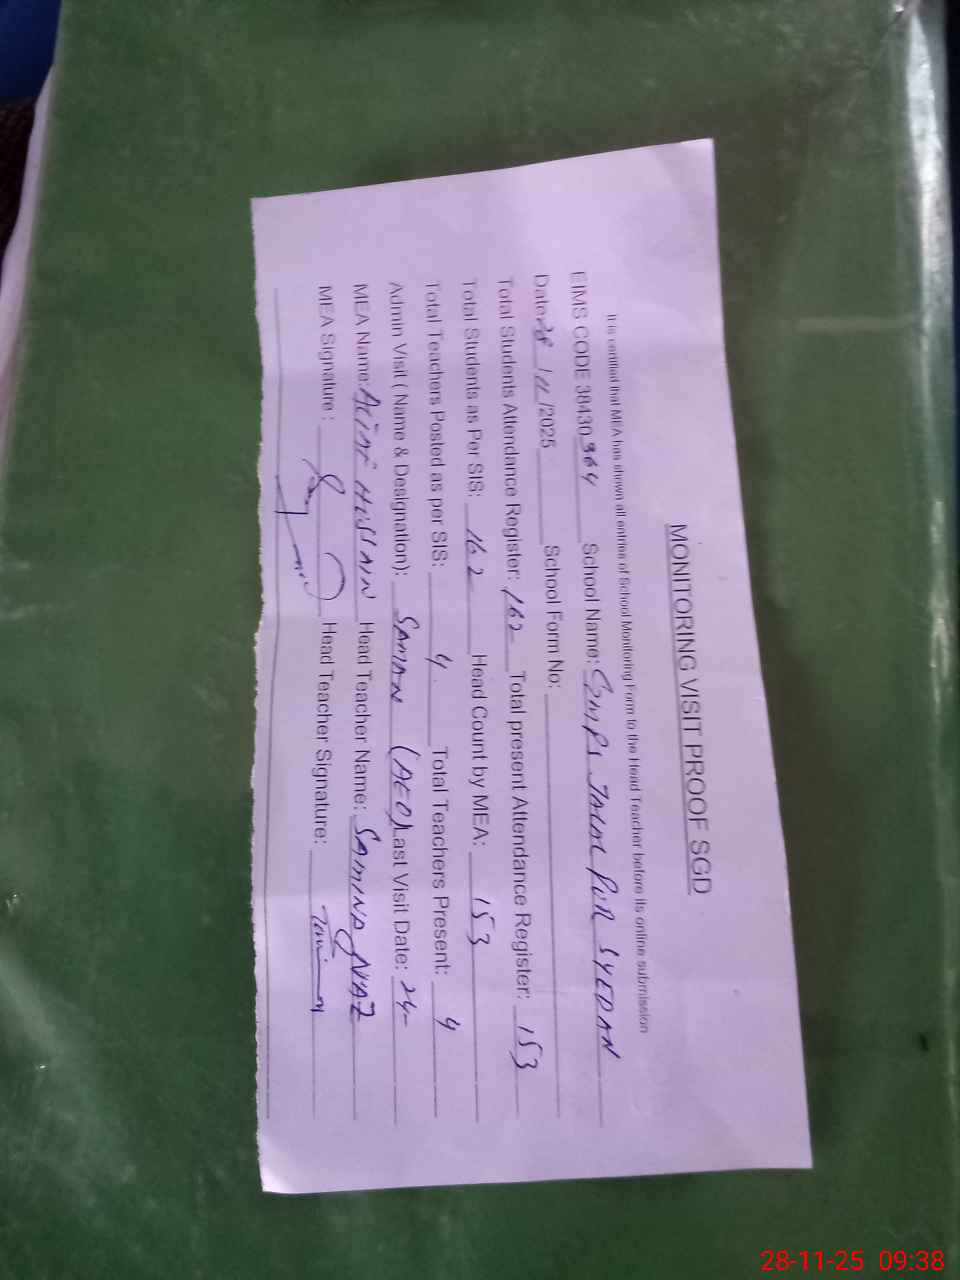 MONITORING VISIT PROOF SGD
It is certified that MEA has shown all entries of School Monitoring Form to the Head Teacher before its online submission
EIMS CODE 38430364 School Name: GMPS JALAL PUR SYEDAN
Date: 28/11/2025 School Form No:
Total Students Attendance Register: 162 Total present Attendance Register: 153
Total Students as Per SIS: 162 Head Count by MEA: 153
Total Teachers Posted as per SIS: 4 Total Teachers Present: 4
Admin Visit ( Name & Designation): SAMAN (AEO) Last Visit Date: 24-
MEA Name: HUSSAIN Head Teacher Name: SAMINA NAZ
MEA Signature : Head Teacher Signature:
28-11-25 09:38